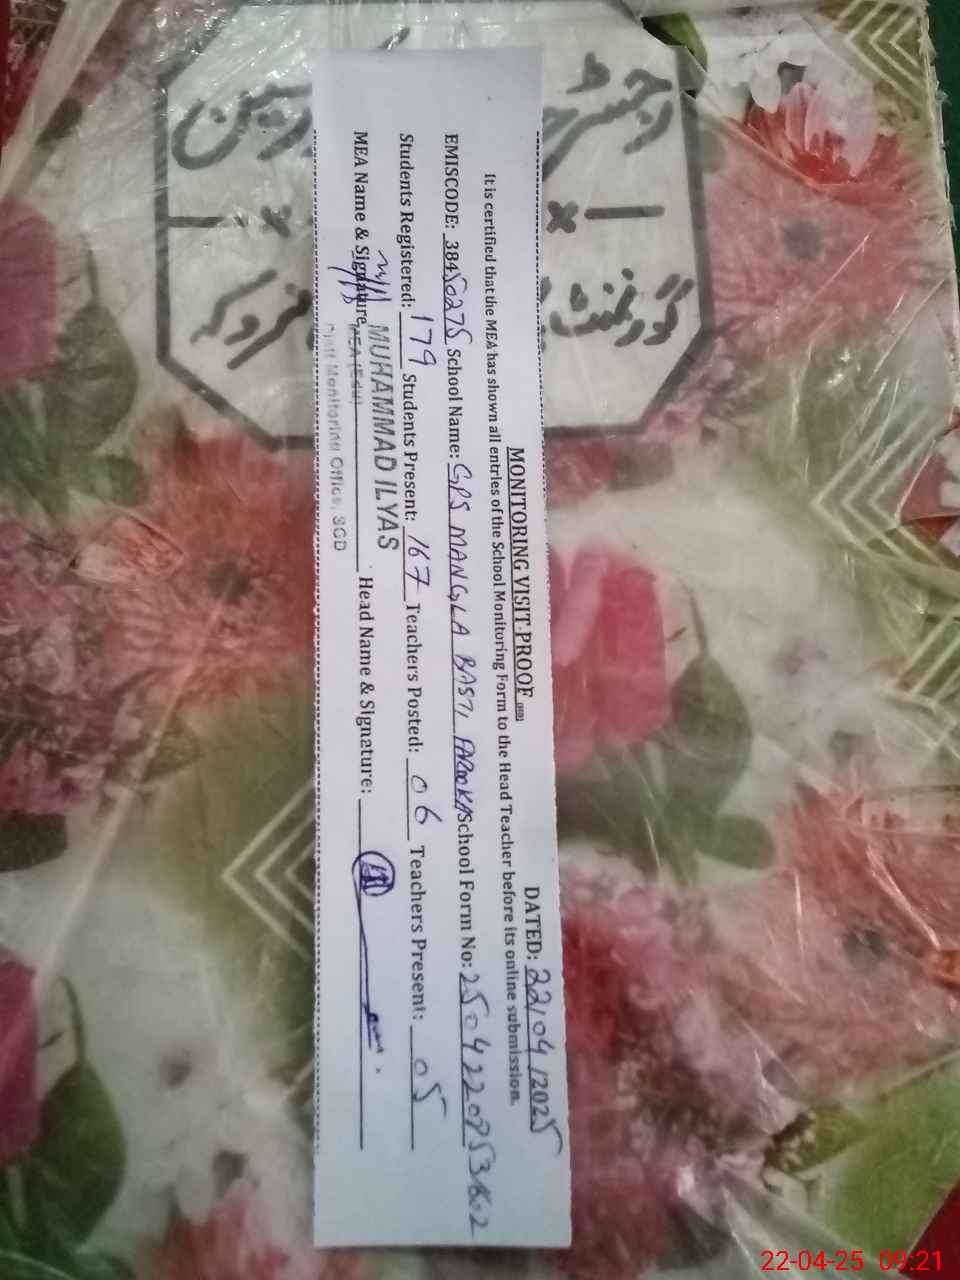 MONITORING VISIT-PROOF
DATED: 22/04/2025
It is certified that the MEA has shown all entries of the School Monitoring Form to the Head Teacher before its online submission.
EMISCODE: 38450275 School Name: GPS MANGLA BASTI FAROOKA School Form No:
Students Registered: 179 Students Present: 167 Teachers Posted: 06 Teachers Present: 05
MEA Name & Signature Head Name & Signature:
MUHAMMAD ILYAS
MEA (Edu)
Distt Monitoring Office, SGD
گورنمنٹ
22-04-25 09:21